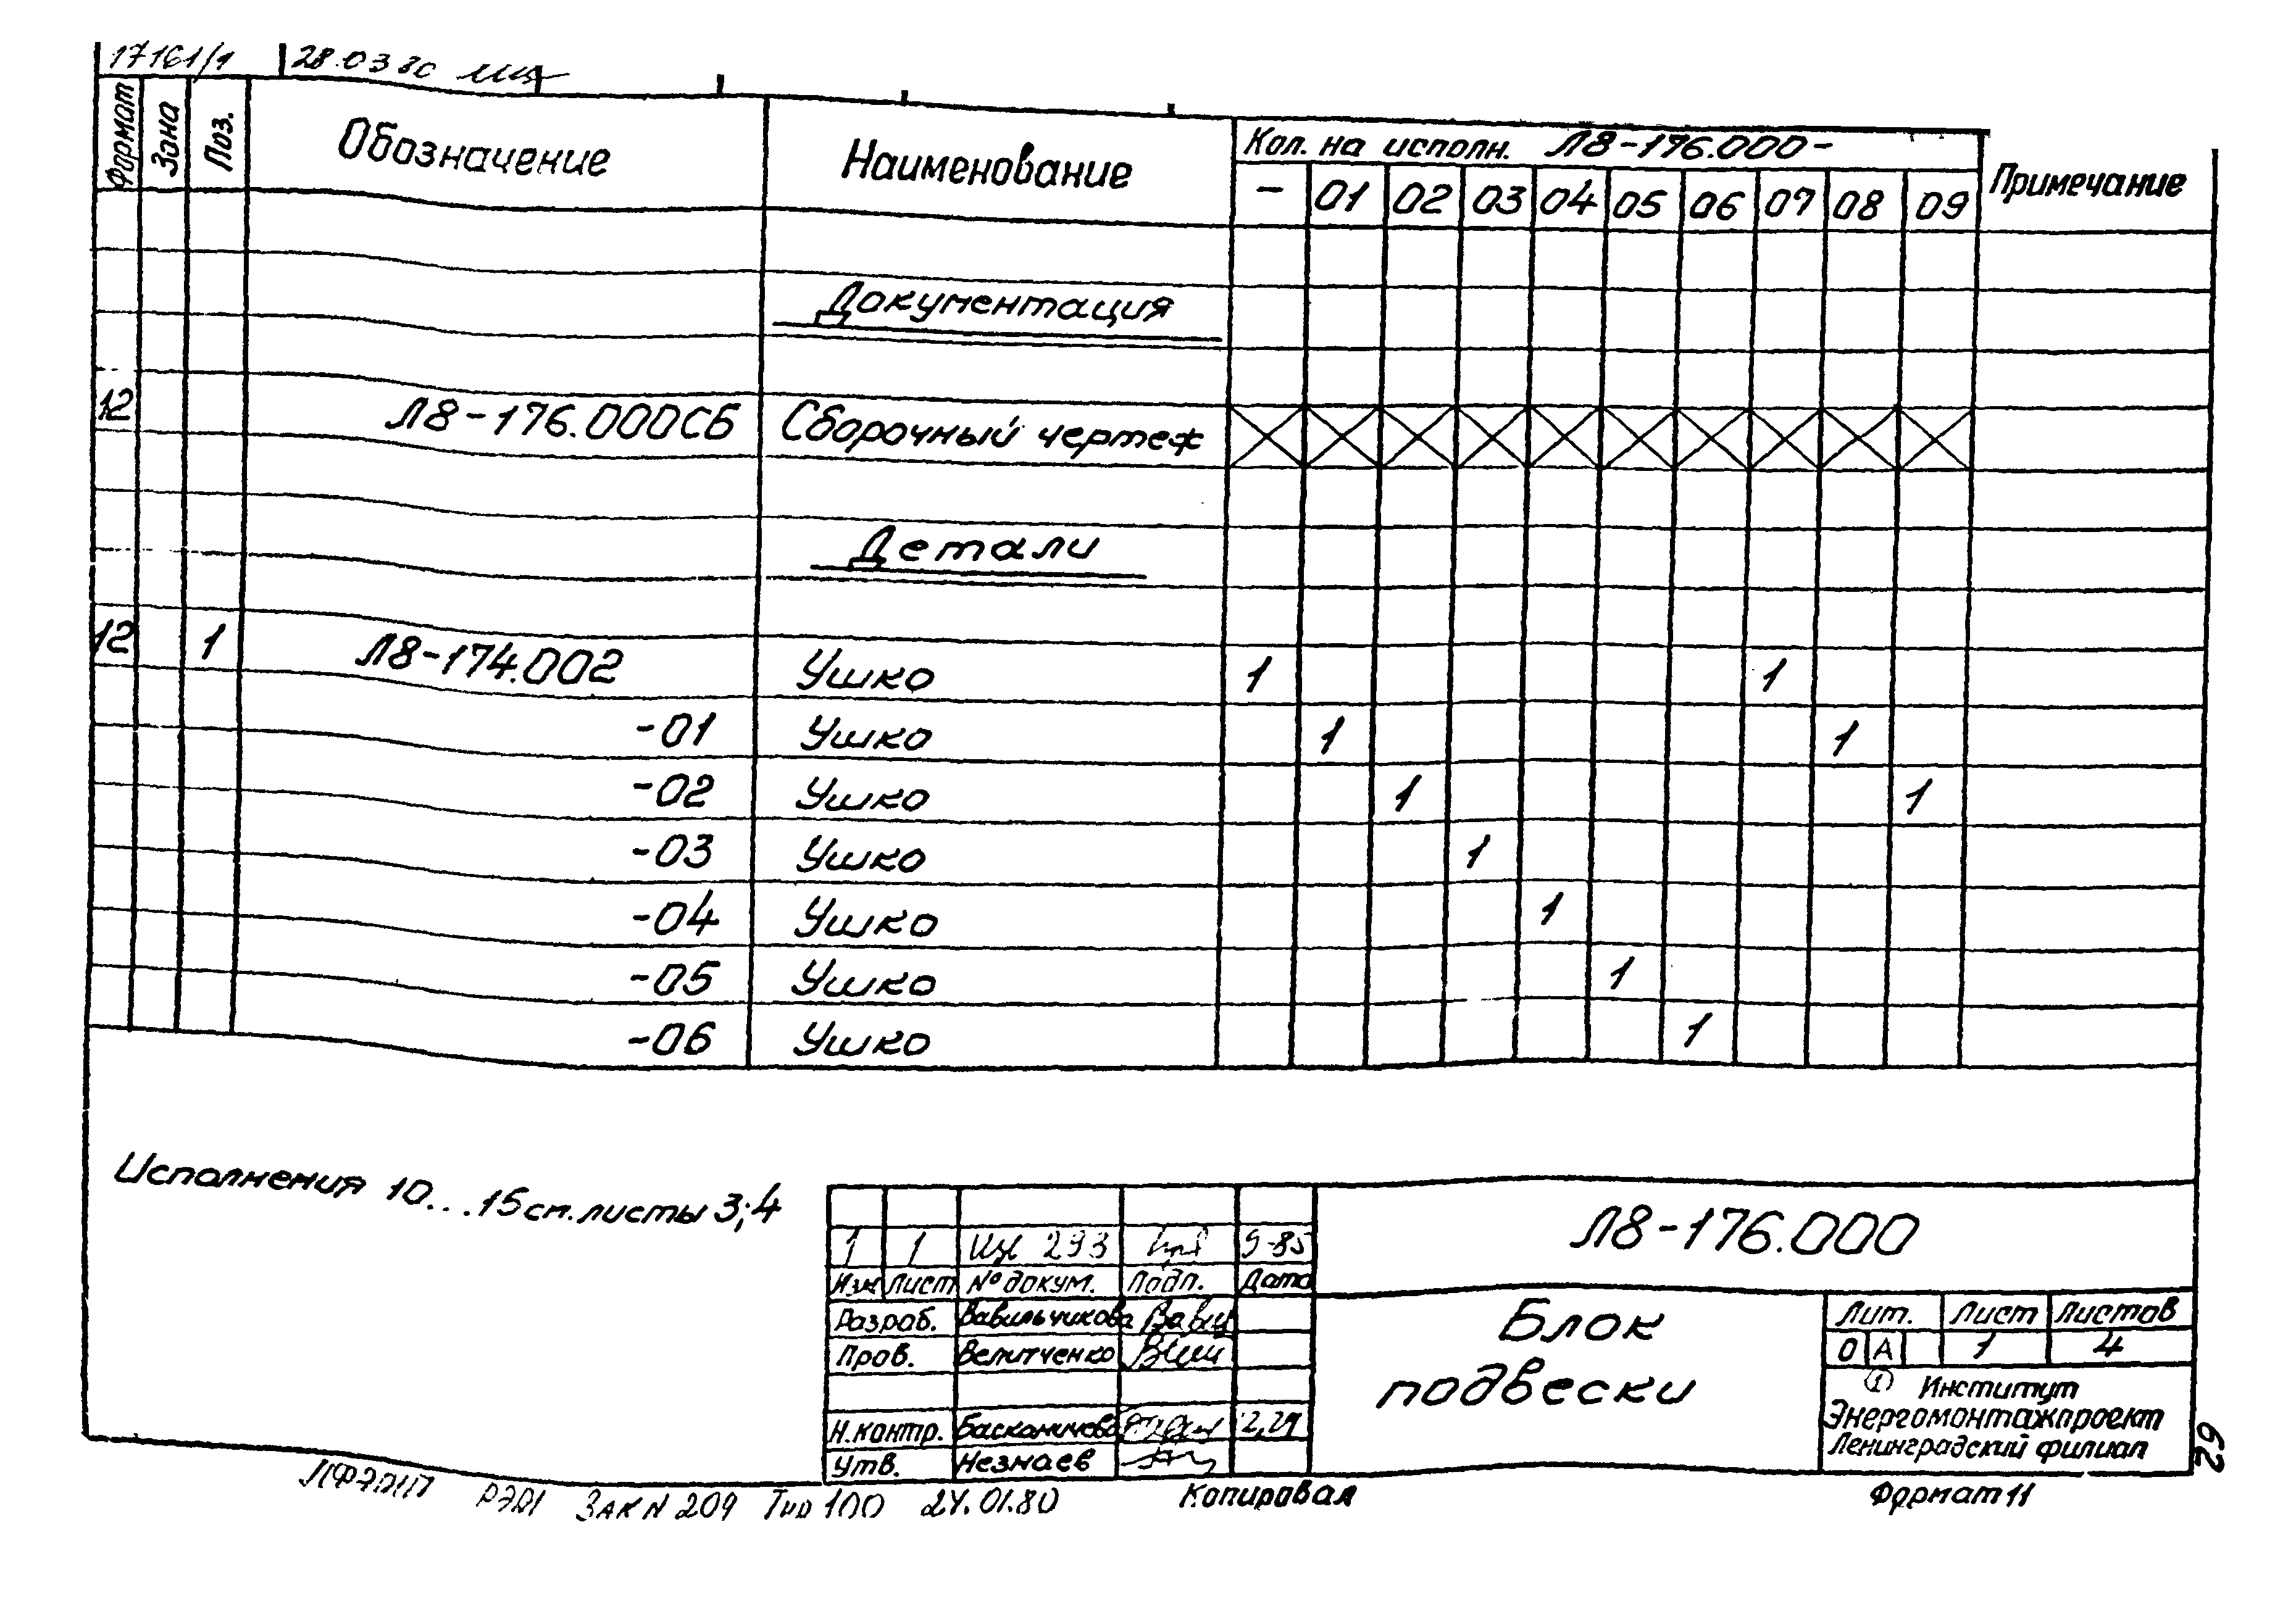 17161/1 28.03.80
Формат Зона Поз. Обозначение Наименование Кол. на исполн. Л8-176.000- Примечание
- 01 02 03 04 05 06 07 08 09
Документация
12 Л8-176.000СБ Сборочный чертеж
Детали
12 1 Л8-174.002 Ушко 1 1
-01 Ушко 1 1
-02 Ушко 1 1
-03 Ушко 1
-04 Ушко 1
-05 Ушко 1
-06 Ушко 1
Исполнения 10...15 см. листы 3;4
Л8-176.000
1 1 293 9-85
Изм Лист № докум. Подп. Дата
Разраб. Вавильчикова
Пров. Велитченко
Н.контр.
Утв. Незнаев
Блок
подвески
Лит. Лист Листов
О А 1 4
1 Институт
Энергомонтажпроект
Ленинградский филиал
29
ЗАК N 209 Тир 100 24.01.80 Копировал Формат 11